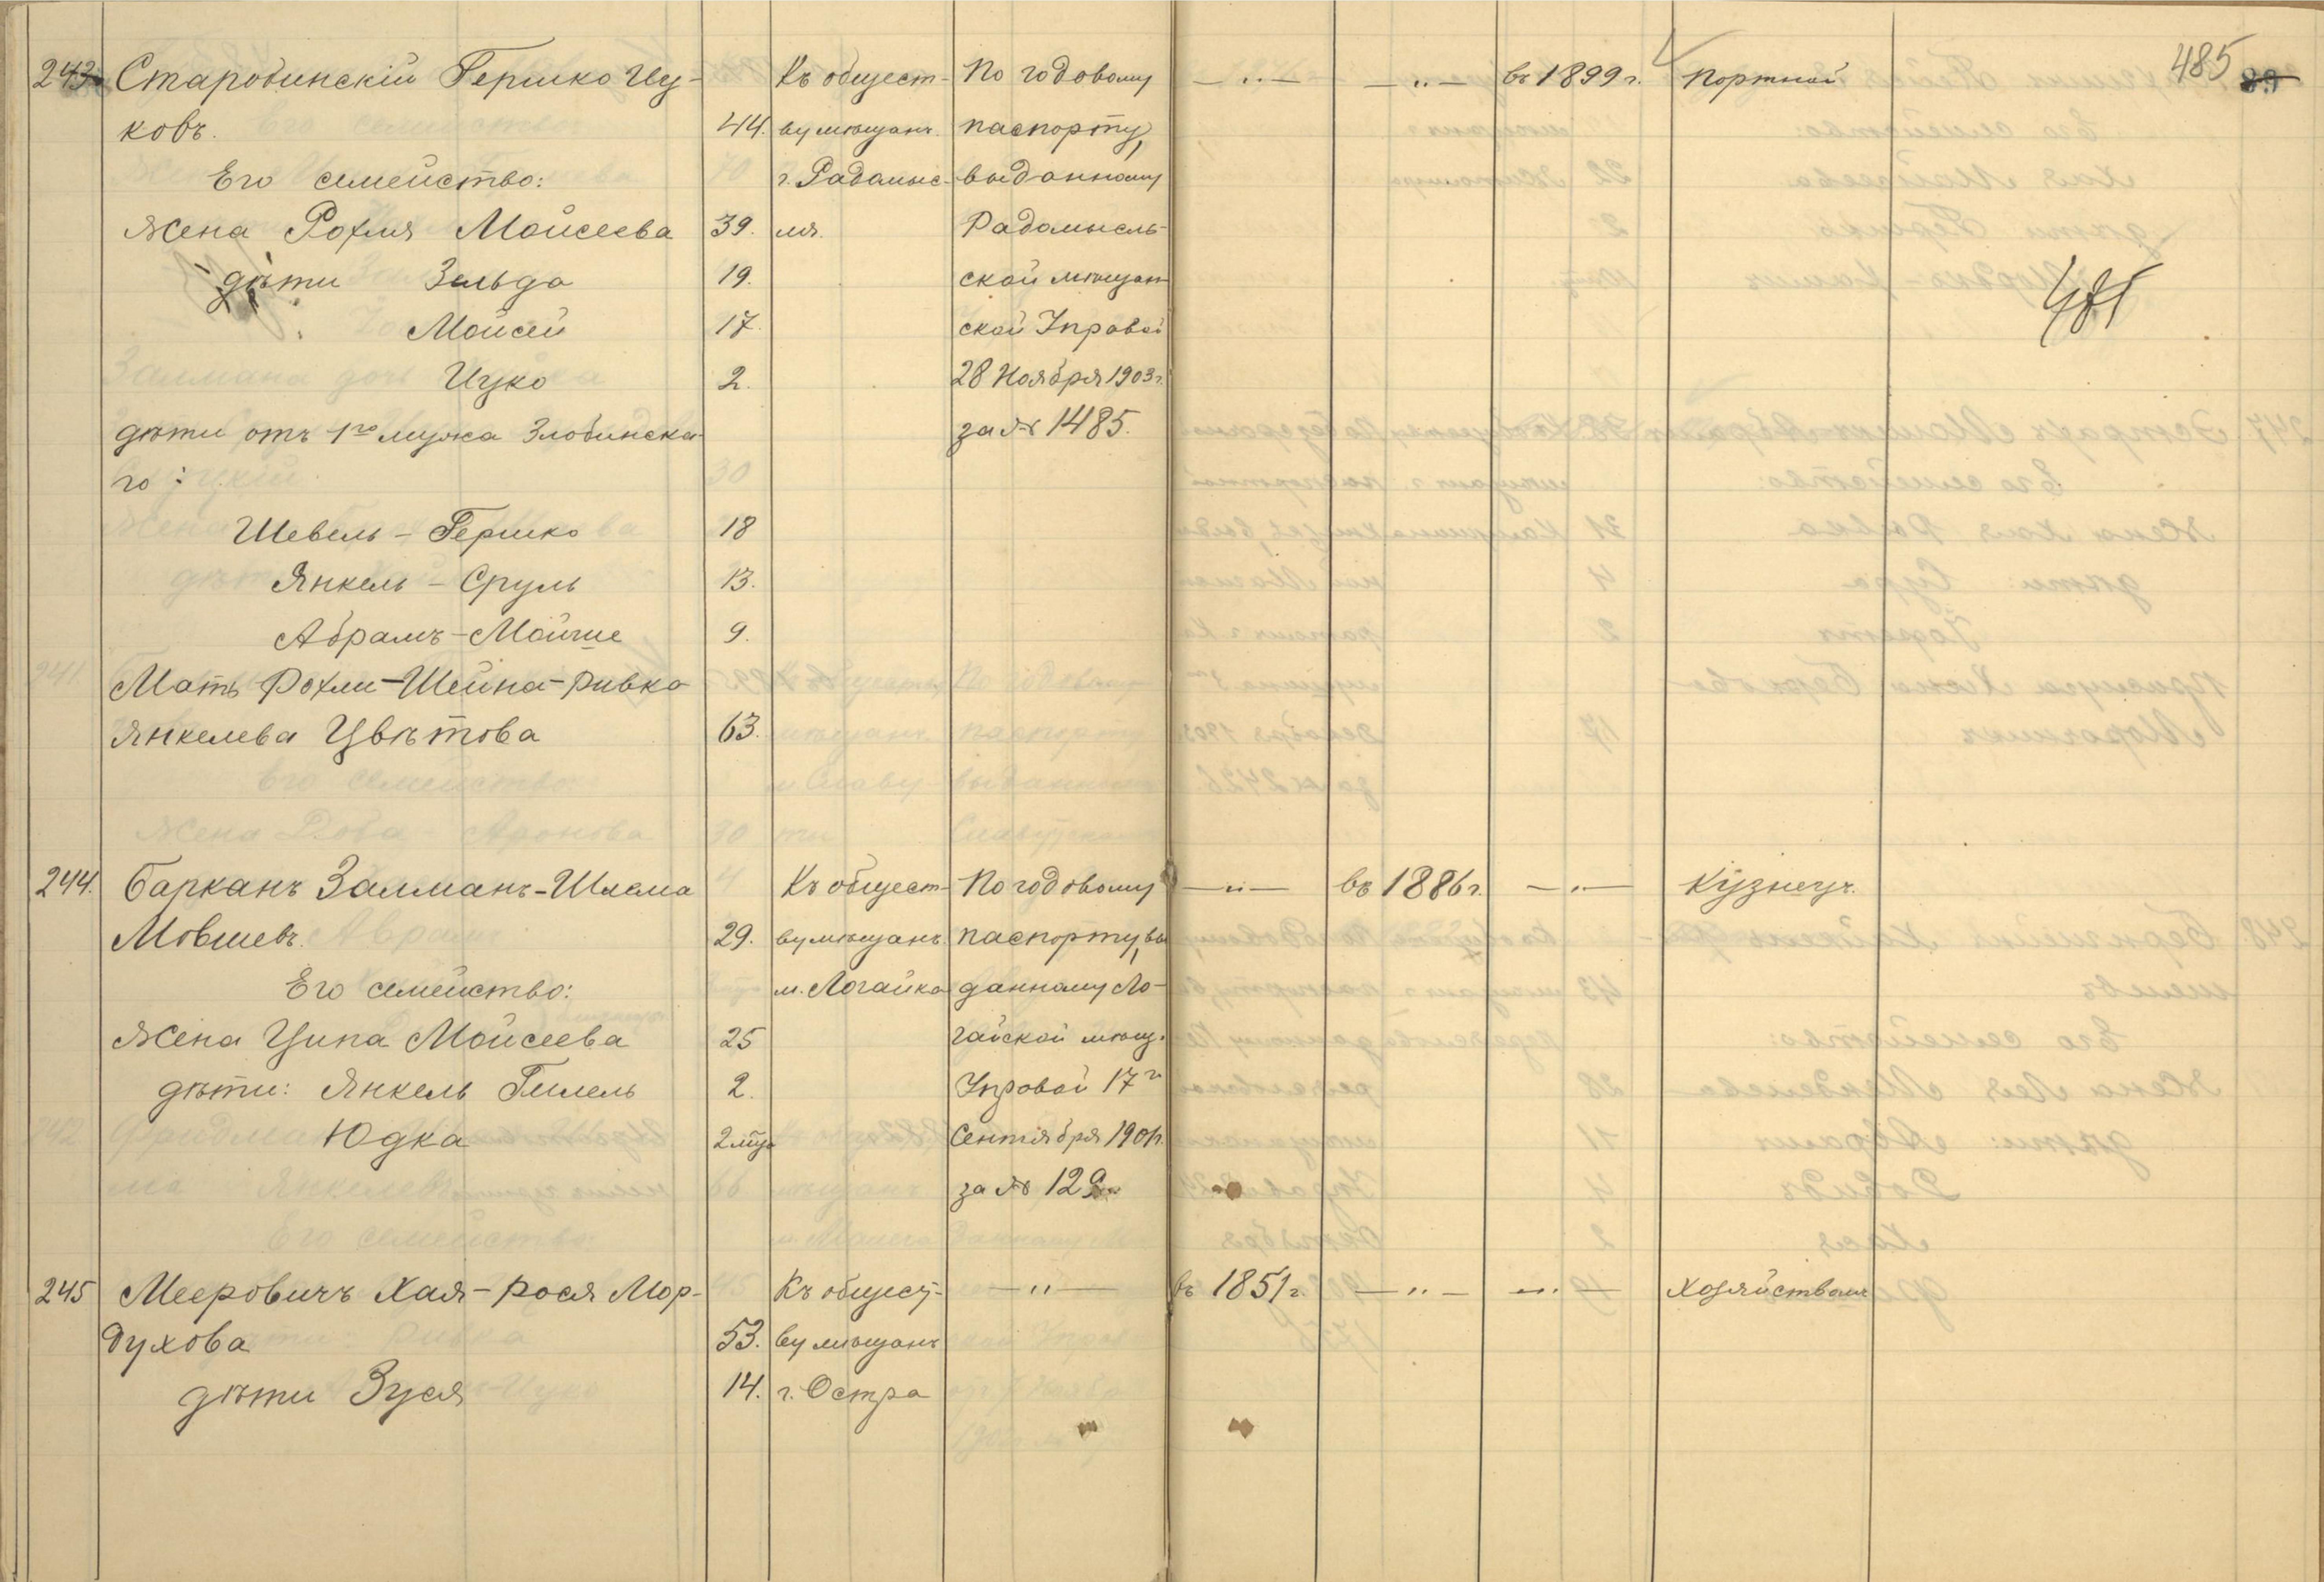 485
243. Старобинскій Гершко Иц- Къ общест- По годовому — „ — — „ — въ 1899 г. Портной
ковъ. 44. ву мѣщанъ паспорту,
Его семейство: г. Радомыс- выданному
Жена Рохля Мойсеева 39. ля. Радомысль-
дѣти Зельда 19. ской мѣщан-
Мойсей 17. ской Управой
Ицко 2. 28 Ноября 1903 г.
дѣти отъ 1го мужа Злобинска- за № 1485.
го:
Шевель - Гершко 18
Янкель - Сруль 13.
Абрамъ - Мойше 9.
Мать Рохли - Шейна - Ривка
Янкелева Цвѣтова 63.
244. Барканъ Залманъ - Шлема Къ общест- По годовому — „ — въ 1886 г. — „ — Кузнецъ.
Мовшевъ. 29. ву мѣщанъ паспорту, вы
Его семейство: м. Логайка данному Ло-
Жена Ципа Мойсеева 25 гайской мѣщ.
дѣти: Янкель Гилель 2. Управой 17го
Юдка 2 мца Сентября 1901 г.
за № 129
245 Мееровичъ Хая - Рося Мор- Къ общест- — „ — въ 1851 г. — „ — — „ — Хозяйствомъ
духова 53. ву мѣщанъ
дѣти Зуся 14. г. Остра